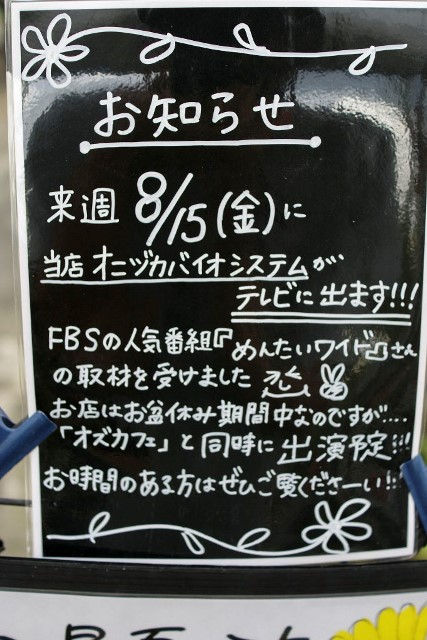 お知らせ
来週 8/15(金)に
当店 オニヅカバイオシステムが、
テレビに出ます!!!
FBSの人気番組『めんたいワイド』さん
の取材を受けました
お店はお盆休み期間中なのですが....
「オズカフェ」と同時に出演予定!!!
お時間のある方はぜひご覧くださーい!!